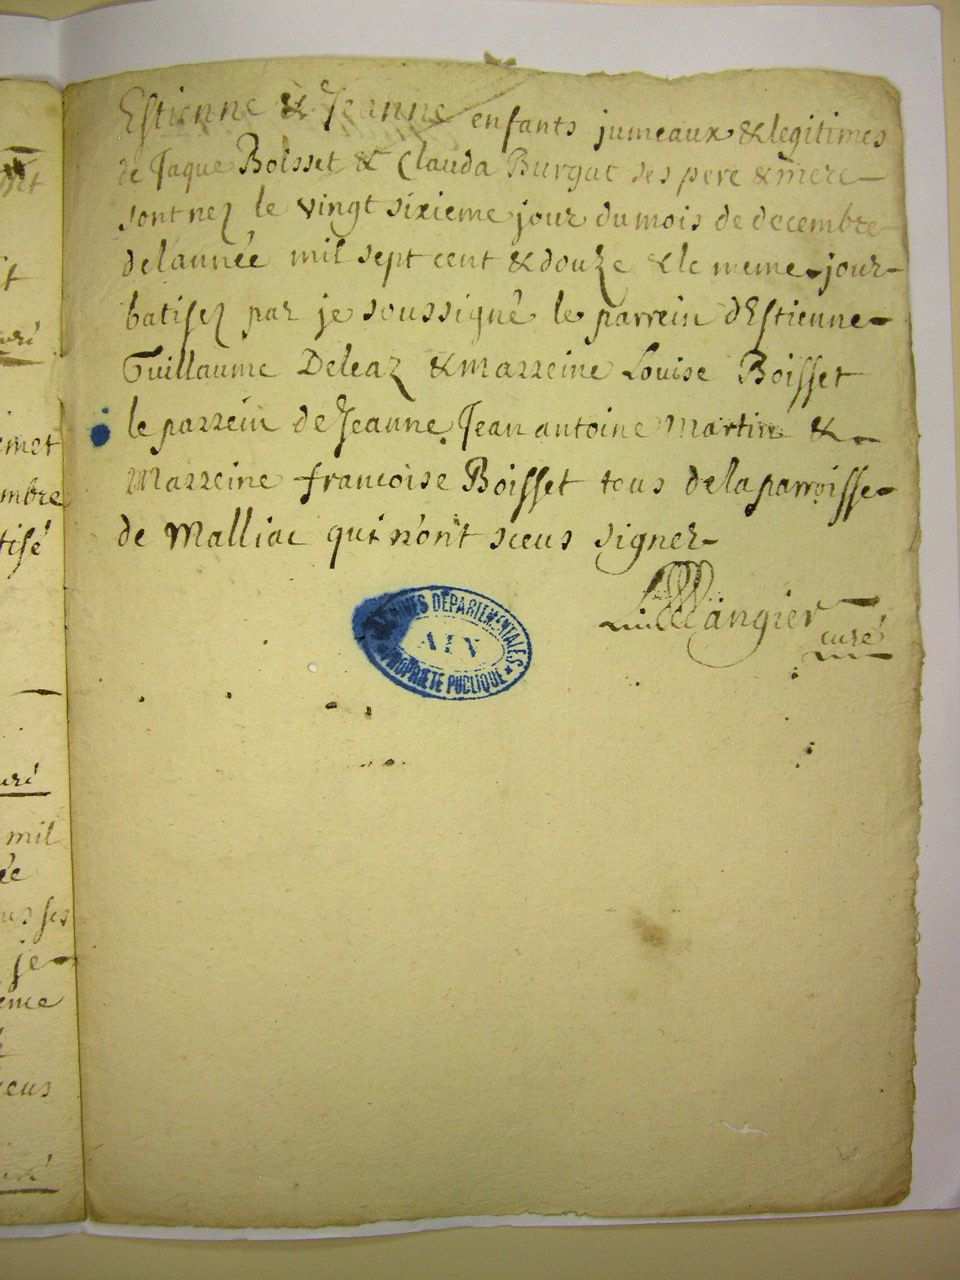 Estienne & Jeanne enfants jumeaux & legitimes
de Jaque Boisset & Clauda Burgat ses pere & mere
sont nez le vingt sixieme jour du mois de decembre
de lannée mil sept cent & douze & le meme jour
batisez par je soussigné le parrein dEstienne
Guillaume Deleaz & marreine Louise Boisset
le parrein de Jeanne Jean antoine Martin &
Marreine francoise Boisset tous de la parroisse
de Malliac qui n'ont sceus signer
Mangier
curé
ARCHIVES DÉPARTEMENTALES
AIN
PROPRIÉTÉ PUBLIQUE
met
mbre
tisé
curé
mil
je
eme
ceus